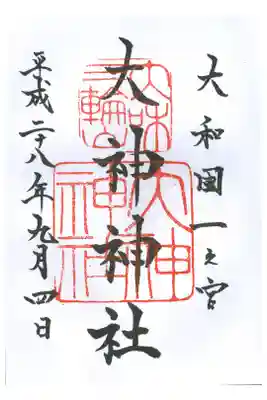 大和国一之宮
大神神社
平成二十八年九月四日